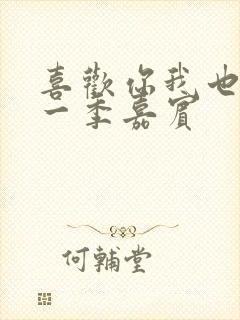 喜歡你我也
一季嘉賓
何輔堂